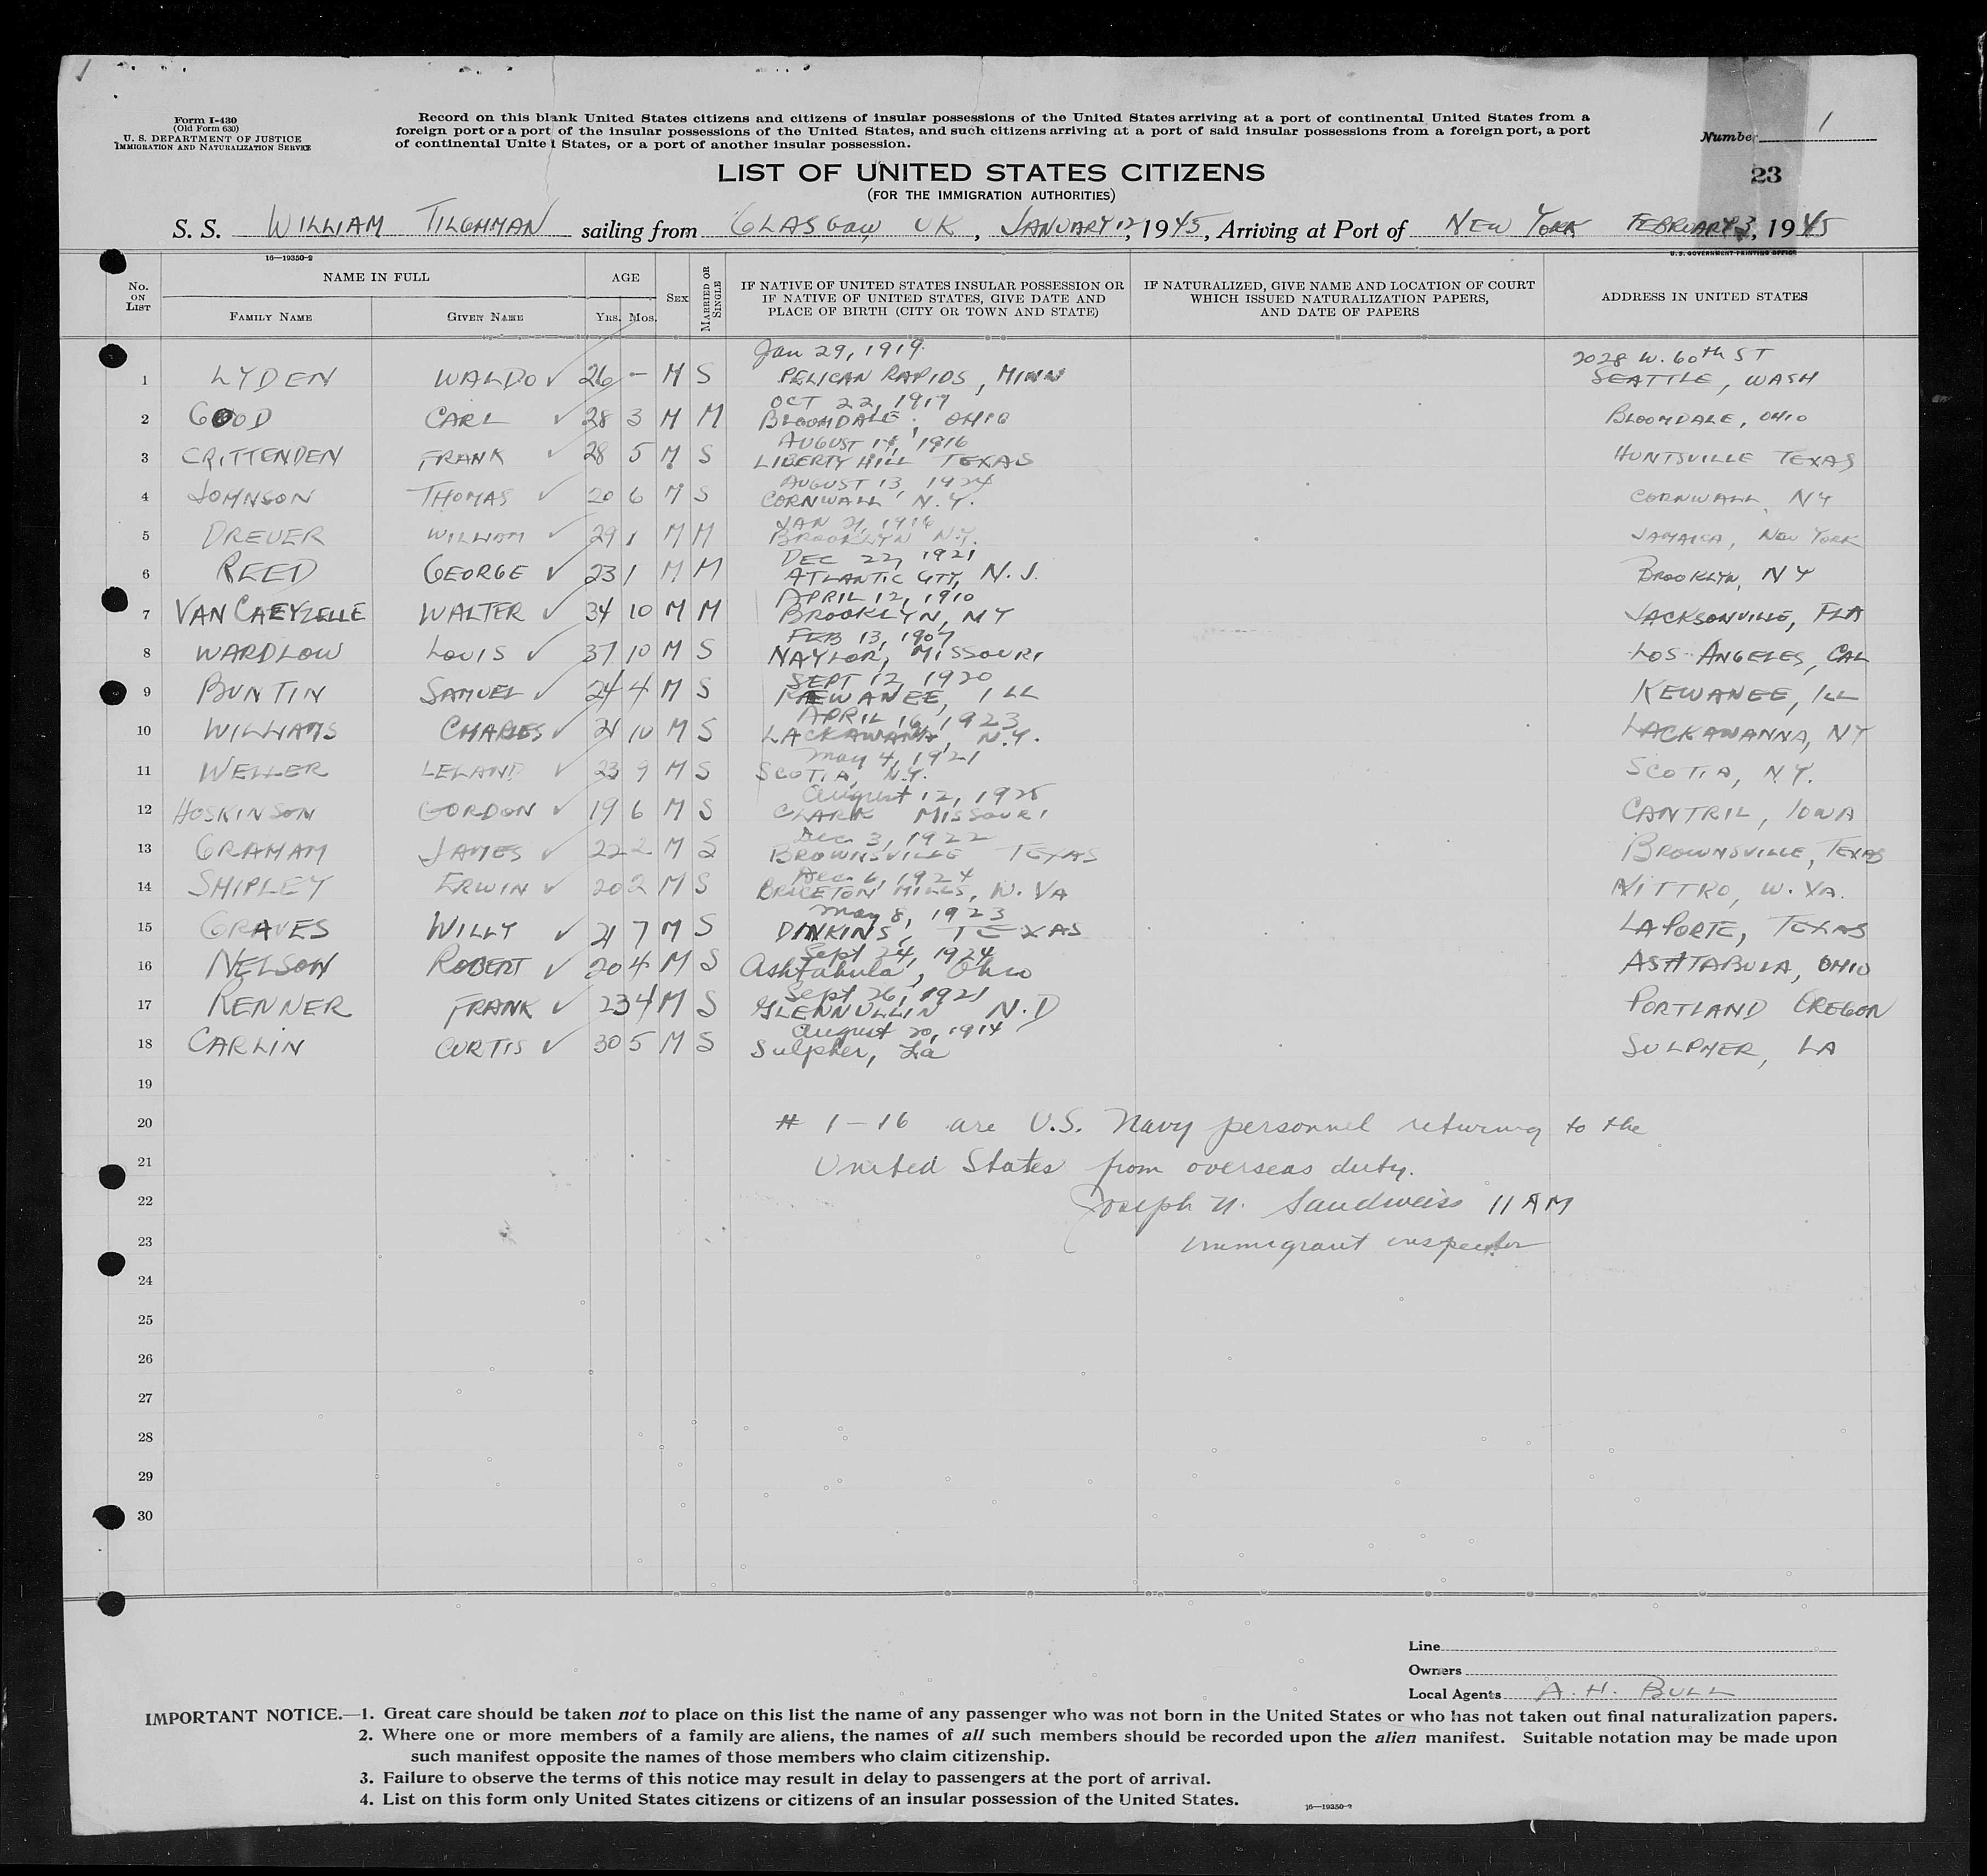 1
Form I-430
(Old Form 630)
U. S. DEPARTMENT OF JUSTICE
IMMIGRATION AND NATURALIZATION SERVICE
Record on this blank United States citizens and citizens of insular possessions of the United States arriving at a port of continental United States from a
foreign port or a port of the insular possessions of the United States, and such citizens arriving at a port of said insular possessions from a foreign port, a port
of continental United States, or a port of another insular possession.
Number 1
LIST OF UNITED STATES CITIZENS
(FOR THE IMMIGRATION AUTHORITIES)
23
S. S. WILLIAM TILGHMAN sailing from GLASGOW UK, JANUARY 12, 1945, Arriving at Port of NEW YORK FEBRUARY 3, 1945
16—19350-2
U. S. GOVERNMENT PRINTING OFFICE
No. ON LIST
NAME IN FULL
FAMILY NAME
GIVEN NAME
AGE
YRS. MOS.
SEX
MARRIED OR SINGLE
IF NATIVE OF UNITED STATES INSULAR POSSESSION OR
IF NATIVE OF UNITED STATES, GIVE DATE AND
PLACE OF BIRTH (CITY OR TOWN AND STATE)
IF NATURALIZED, GIVE NAME AND LOCATION OF COURT
WHICH ISSUED NATURALIZATION PAPERS,
AND DATE OF PAPERS
ADDRESS IN UNITED STATES
Jan 29, 1919. 2028 W. 60th ST
1 LYDEN WALDO ✓ 26 – M S PELICAN RAPIDS, MINN SEATTLE, WASH
OCT 22, 1917
2 GOOD CARL ✓ 28 3 M M BLOOMDALE, OHIO BLOOMDALE, OHIO
AUGUST 14, 1916
3 CRITTENDEN FRANK ✓ 28 5 M S LIBERTY HILL TEXAS HUNTSVILLE TEXAS
AUGUST 13, 1924
4 JOHNSON THOMAS ✓ 20 6 M S CORNWALL, N.Y. CORNWALL, NY
JAN 21, 1916
5 DREUER WILLIAM ✓ 29 1 M M BROOKLYN N.Y. JAMAICA, NEW YORK
DEC 22, 1921
6 REED GEORGE ✓ 23 1 M M ATLANTIC CITY, N.J. BROOKLYN, NY
APRIL 12, 1910
7 VAN CAEYZELLE WALTER ✓ 34 10 M M BROOKLYN, NY JACKSONVILLE, FLA
FEB 13, 1907
8 WARDLOW LOUIS ✓ 37 10 M S NAYLOR, MISSOURI LOS ANGELES, CAL
SEPT 12, 1920
9 BUNTIN SAMUEL ✓ 24 4 M S KEWANEE, ILL KEWANEE, ILL
APRIL 16, 1923
10 WILLIAMS CHARLES ✓ 21 10 M S LACKAWANA, N.Y. LACKAWANNA, NY
May 4, 1921
11 WELLER LELAND ✓ 23 9 M S SCOTIA, N.Y. SCOTIA, N.Y.
August 12, 1925
12 HOSKINSON GORDON ✓ 19 6 M S CLARK MISSOURI CANTRIL, IOWA
Dec. 3, 1922
13 GRAHAM JAMES ✓ 22 2 M S BROWNSVILLE TEXAS BROWNSVILLE, TEXAS
Dec. 6, 1924
14 SHIPLEY ERWIN ✓ 20 2 M S BRUCETON MILLS, W. VA NITTRO, W. VA.
May 8, 1923
15 GRAVES WILLY ✓ 21 7 M S DINKINS, TEXAS LAPORTE, TEXAS
Sept 24, 1924
16 NELSON ROBERT ✓ 20 4 M S Ashtabula, Ohio ASHTABULA, OHIO
Sept 26, 1921
17 RENNER FRANK ✓ 23 4 M S GLENNULLIN N.D PORTLAND OREGON
August 20, 1914
18 CARLIN CURTIS ✓ 30 5 M S Sulpher, La SULPHER, LA
19
20 # 1–16 are U.S. Navy personnel returning to the
21 United States from overseas duty.
22 Joseph N. Sandweiss 11 AM
23 immigrant inspector
24
25
26
27
28
29
30
Line
Owners
Local Agents A. H. BULL
IMPORTANT NOTICE.—1. Great care should be taken not to place on this list the name of any passenger who was not born in the United States or who has not taken out final naturalization papers.
2. Where one or more members of a family are aliens, the names of all such members should be recorded upon the alien manifest. Suitable notation may be made upon
such manifest opposite the names of those members who claim citizenship.
3. Failure to observe the terms of this notice may result in delay to passengers at the port of arrival.
4. List on this form only United States citizens or citizens of an insular possession of the United States.
16—19350-2